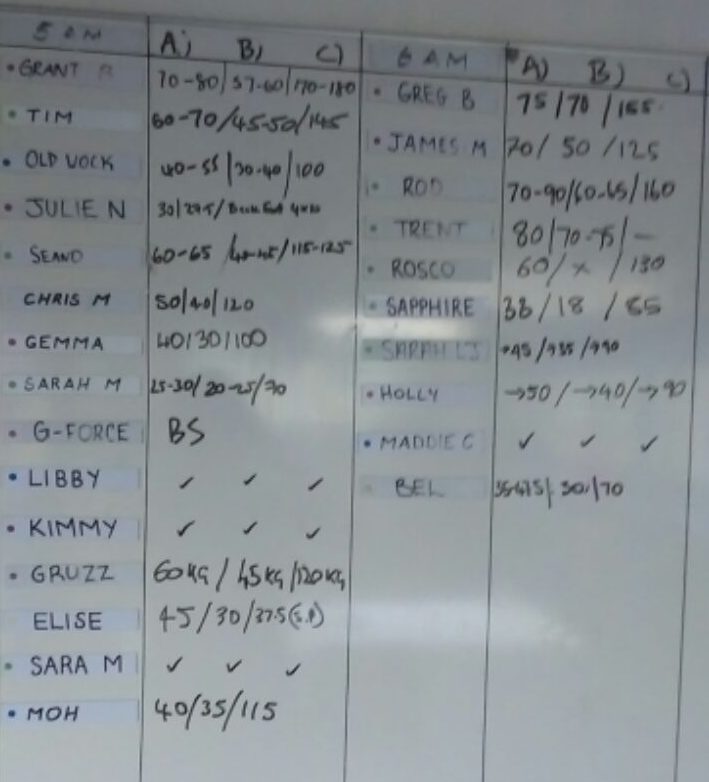 5 AM A) B) C)
• GRANT 70-80/57-60/170-180
• TIM 60-70/45-50/145
• OLD VOCK 40-55/30-40/100
• JULIE N
• SEANO 60-65 /40-45/115-125
CHRIS M 50/40/120
• GEMMA 40/30/100
• SARAH M 25-30/20-25/70
• G-FORCE BS
• LIBBY ✓ ✓ ✓
• KIMMY ✓ ✓ ✓
• GRUZZ 60KG / 45KG /120KG
ELISE 45/30/37.5
• SARA M ✓ ✓ ✓
• MOH 40/35/115
6 AM A) B) C)
• GREG B 75/70/155
• JAMES M 70/ 50 /125
• ROD 70-90/60-65/160
• TRENT 80/70-75/—
• ROSCO 60/ x /130
• SAPPHIRE 33/18 /55
• SARAH
• HOLLY →50/→40/→90
• MADDIE C ✓ ✓ ✓
• BEL 30/70